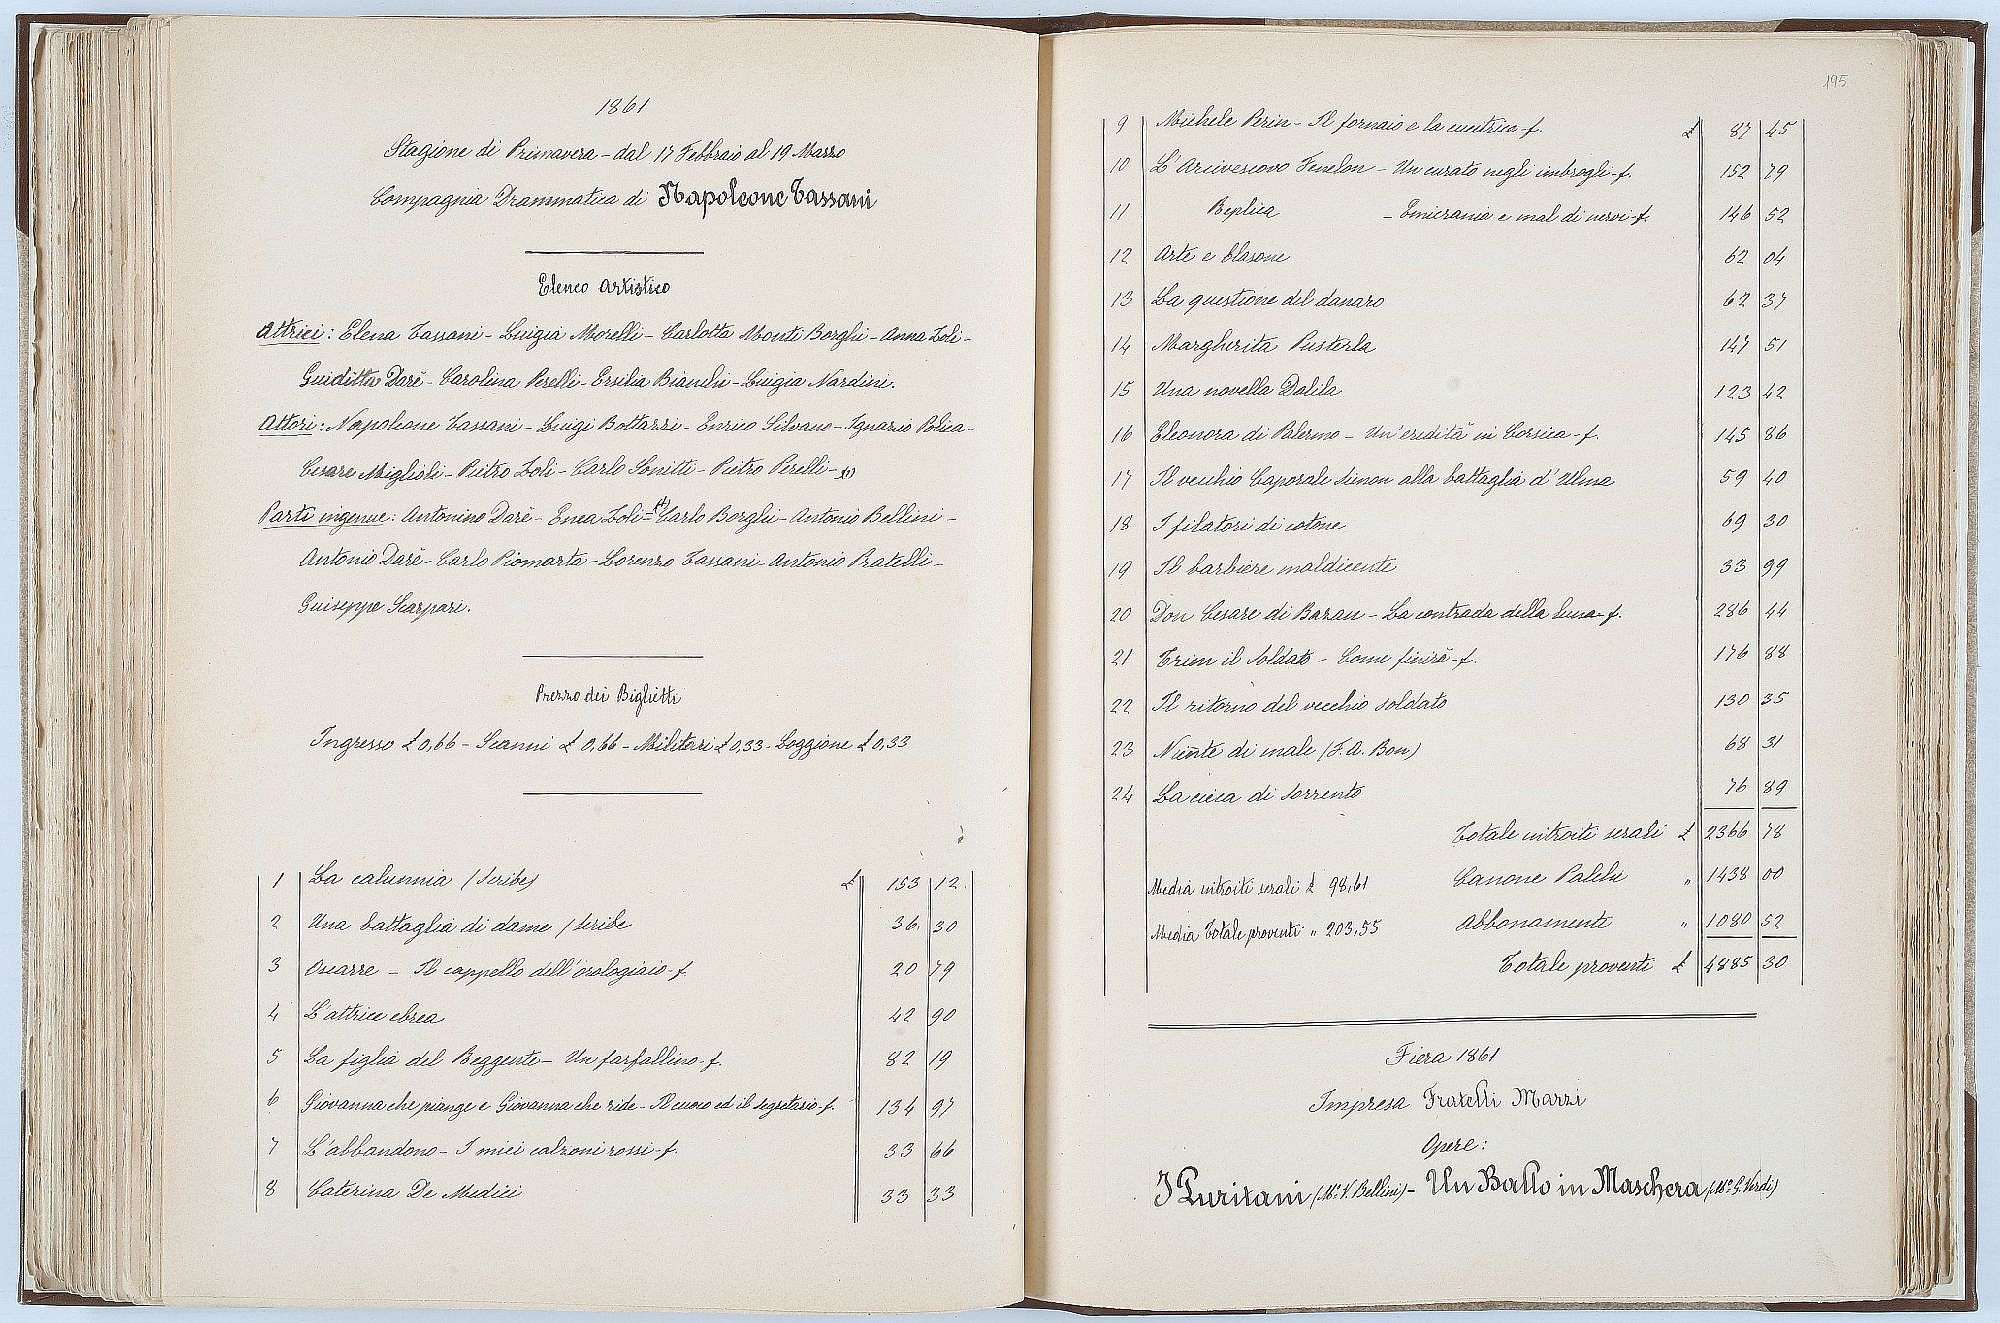 1861
Stagione di Primavera - dal 17 Febbraio al 19 Marzo
Compagnia Drammatica di Napoleone Tassani
Elenco Artistico
Attrici: Elena Tassani - Luigia Morelli - Carlotta Monti Borghi - Anna Zoli -
Guiditta Darè - Carolina Perelli - Ersilia Bianchi - Luigia Nardini.
Attori: Napoleone Tassani - Luigi Bottazzi - Enrico Silvano - Ignazio Polica -
Cesare Miglioli - Pietro Zoli - Carlo Sonitti - Pietro Perelli -
Parti ingenue: Antonino Darè - Enea Zoli - Carlo Borghi - Antonio Bellini -
Antonio Darè - Carlo Piomarta - Lorenzo Tassani - Antonio Pratelli -
Guiseppe Scarpari.
Prezzo dei Biglietti
Ingresso £ 0,66 - Scanni £ 0,66 - Militari £ 0,33 - Loggione £ 0,33
1 La calunnia (Scribe) £ 153 12
2 Una battaglia di dame (Scribe 36 30
3 Oscarre - Il cappello dell'orologiaio - f. 20 79
4 L'attrice ebrea 42 90
5 La figlia del Reggente - Un farfallino - f. 82 19
6 Giovanna che piange e Giovanna che ride - Il cuoco ed il segretario - f. 134 97
7 L'abbandono - I miei calzoni rossi - f. 33 66
8 Caterina De Medici 33 33
195
9 Michele Perin - Il fornaio e la cucitrice - f. £ 87 45
10 L'Arcivescovo Fenelon - Un curato negli imbrogli - f. 152 79
11 Replica - Emicrania e mal di nervi - f. 146 52
12 Arte e blasone 62 04
13 La questione del danaro 62 37
14 Margherita Pusterla 147 51
15 Una novella Dalila 123 42
16 Eleonora di Palermo - Un'eredità in Corsica - f. 145 86
17 Il vecchio Caporale Simon alla battaglia d'Ulma 59 40
18 I filatori di cotone 69 30
19 Il barbiere maldicente 33 99
20 Don Cesare di Bazan - La contrada della luna - f. 286 44
21 Trim il soldato - Come finirà - f. 176 88
22 Il ritorno del vecchio soldato 130 35
23 Niente di male (F. A. Bon) 68 31
24 La cieca di Sorrento 76 89
Totale introiti serali £ 2366 78
Media introiti serali £ 98,61 Canone Palchi " 1438 00
Media Totale proventi " 203,55 Abbonamenti " 1080 52
Totale proventi £ 4885 30
Fiera 1861
Impresa Fratelli Marzi
Opere:
I Puritani (Mo. V. Bellini) - Un Ballo in Maschera (Mo. G. Verdi)